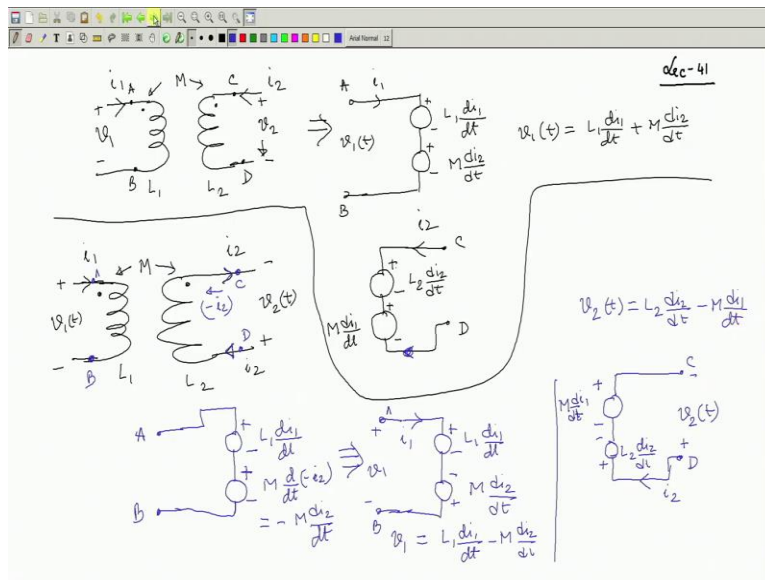 Arial Normal 12
Lec-41
i₁ A M C i₂
+ + 
v₁ v₂
- -
B L₁ L₂ D
⇒
A i₁
v₁(t)
B
+ L₁ di₁/dt -
+ M di₂/dt -
v₁(t) = L₁ di₁/dt + M di₂/dt
i₂ C
+ L₂ di₂/dt -
M di₁/dt + -
D
i₁ A M i₂ -
+ C
(-i₂)
v₁(t) v₂(t)
- B D +
L₁ L₂ i₂
v₂(t) = L₂ di₂/dt - M di₁/dt
A
+ L₁ di₁/dt -
+ M d/dt (-i₂) -
B = - M di₂/dt
⇒
A
+ i₁
v₁
- B
+ L₁ di₁/dt -
- M di₂/dt +
v₁ = L₁ di₁/dt - M di₂/dt
C -
M di₁/dt + -
v₂(t)
- L₂ di₂/dt +
+ D
i₂